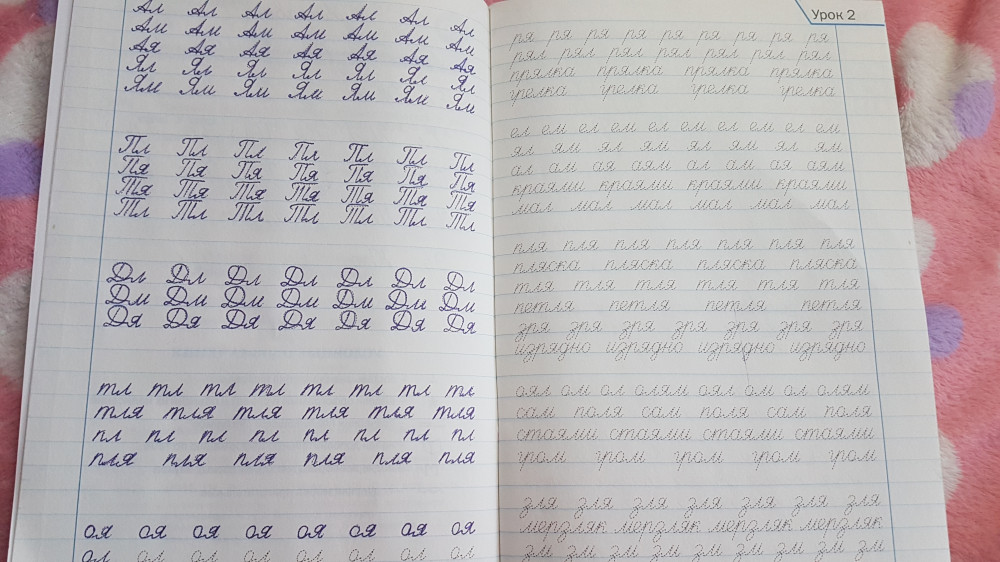 Ал Ал Ал Ал Ал Ал Ал
Ам Ам Ам Ам Ам Ам Ам
Ая Ая Ая Ая Ая Ая Ая
Ял Ял Ял Ял Ял Ял Ял
Ям Ям Ям Ям Ям Ям Ям
Пл Пл Пл Пл Пл Пл Пл
Пя Пя Пя Пя Пя Пя Пя
Тя Тя Тя Тя Тя Тя Тя
Тл Тл Тл Тл Тл Тл Тл
Дл Дл Дл Дл Дл Дл Дл
Дм Дм Дм Дм Дм Дм Дм
Дя Дя Дя Дя Дя Дя Дя
тл тл тл тл тл тл тл тл
тля тля тля тля тля тля
пл пл пл пл пл пл пл пл
пля пля пля пля пля пля
оя оя оя оя оя оя оя оя
ол ол ол ол ол ол ол ол
Урок 2
ря ря ря ря ря ря ря ря ря
рял рял рял рял рял рял рял
прялка прялка прялка прялка
грелка грелка грелка грелка
ел ем ел ем ел ем ел ем ел ем
ял ям ял ям ял ям ял ям
ал ам ая аям ал ам ая аям
краями краями краями краями
мал мал мал мал мал мал
пля пля пля пля пля пля пля
пляска пляска пляска пляска
тля тля тля тля тля тля
петля петля петля петля
зря зря зря зря зря зря зря
изрядно изрядно изрядно изрядно
оял ом ол олям оял ом ол олям
сам поля сам поля сам поля
стаями стаями стаями стаями
гром гром гром гром гром
зля зля зля зля зля зля зля
мерзляк мерзляк мерзляк мерзляк
зм зм зм зм зм зм зм зм зм